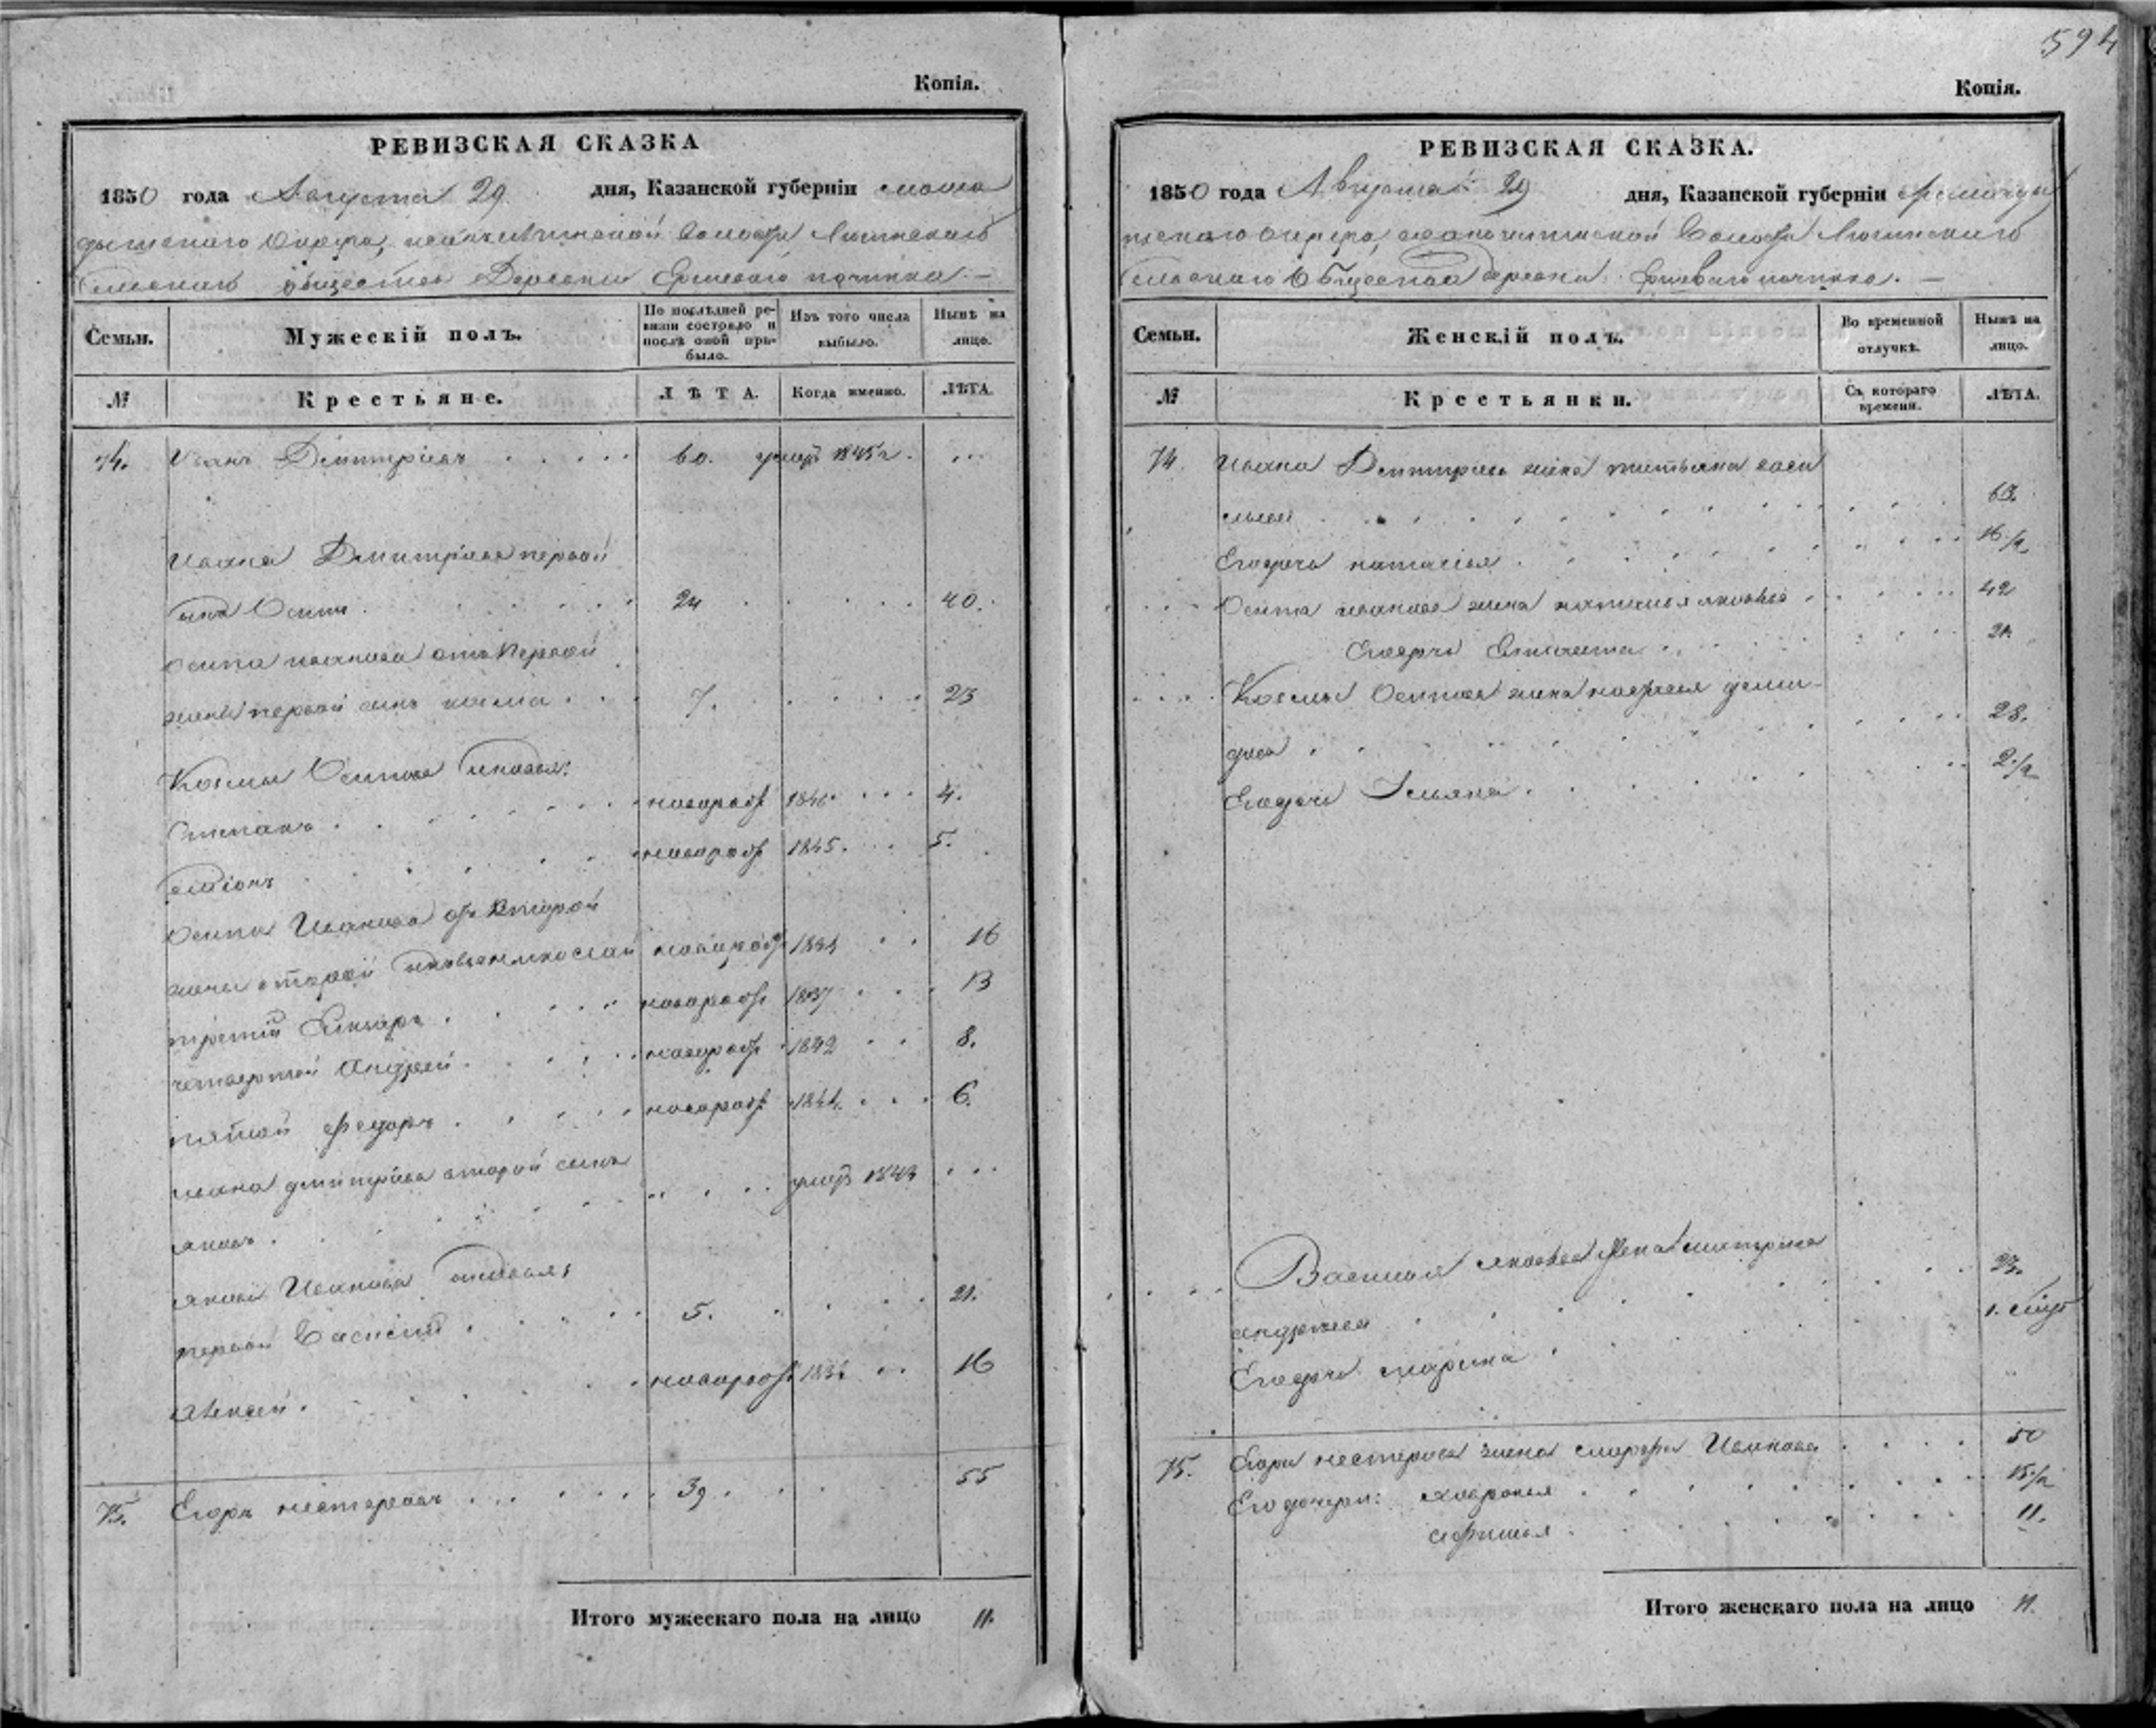 Копія.
РЕВИЗСКАЯ СКАЗКА
1850 года Августа 29 дня, Казанской губерніи мама
дышскаго Округа, Волости
Сельскаго общества Деревни Ершеваго починка. —
Семьи. Мужескій полъ. По послѣдней ревизіи состояло и послѣ оной прибыло. Изъ того числа выбыло. Нынѣ на лицо.
№ Крестьяне. ЛѢТА. Когда именно. ЛѢТА.
74. Иванъ Дмитріевъ 60. умеръ 1845 г. ...
Ивана Дмитріева первой
сынъ Осипъ 24 40.
Осипа Иванова отъ первой
жены первой сынъ козма 7. 23
Козмы Осипова сыновья:
Степанъ новорож 1846 4.
новорож 1845. 5.
Осипа Иванова отъ второй
жены второй новорож 1834 16
третій новорож 1837 13
четвертой Андрей новорож 1842 8.
пятой федоръ новорож 1844. 6.
ивана дмитріева второй сынъ
умеръ 1843 ...
яковъ
якова Иванова сыновья
первой Василій 5. 21.
Алексей новорож 1834 16
75. Егоръ нестеровъ 39. 55
Итого мужескаго пола на лицо 11.
594
Копія.
РЕВИЗСКАЯ СКАЗКА.
1850 года Августа 29 дня, Казанской губерніи
Округа, Волости
Сельскаго Общества деревни Ершеваго починка. —
Семьи. Женскій полъ. Во временной отлучкѣ. Нынѣ на лицо.
№ Крестьянки. Съ котораго времени. ЛѢТА.
74. Ивана Дмитріева жена татьяна васи
льева 63.
Егодочь наталья 16 1/2
Осипа иванова жена наталья яковлева 42
Егодочь 21
Козмы Осипова жена настасья деми-
дова 28.
Егодочь 2 1/2
Василья яковлева жена матрена
андреева 23.
Егодочь марина 1.
75. Егора нестерова жена марфа Иванова 50
Его дочери: хавронья 15 1/2
афимья 11.
Итого женскаго пола на лицо 11.